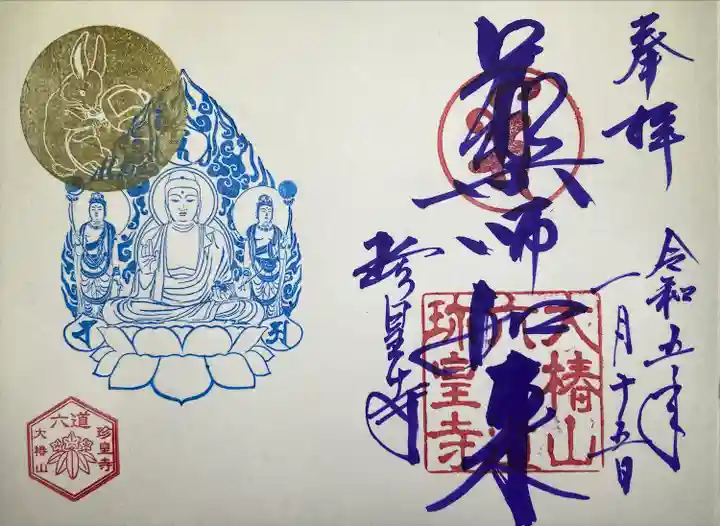 奉拝
令和五年
一月十五日
薬師如来
大椿山
六道
珍皇寺
珍皇寺
六道
珍皇寺
大椿山